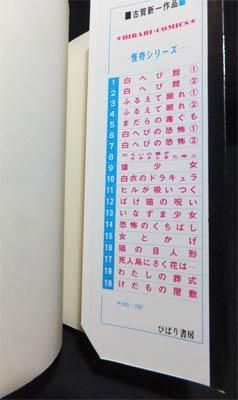 ■古賀新一作品■
★HIBARI・COMICS★
—怪奇シリーズ—
1 白へび館①
2 白へび館②
3 ふるえて眠れ①
4 ふるえて眠れ②
5 まだらの毒ぐも
6 白へびの恐怖①
7 白へびの恐怖②
9 猫少女
10 白衣のドラキュラ
11 ヒルが吸いつく
12 ばけ猫の呪い
13 いなずま少女
14 恐怖のくちばし
15 女とかげ
16 猫の目人形
17 死人鳥にさく花は…
18 わたしの葬式
19 けだもの屋敷
ひばり書房